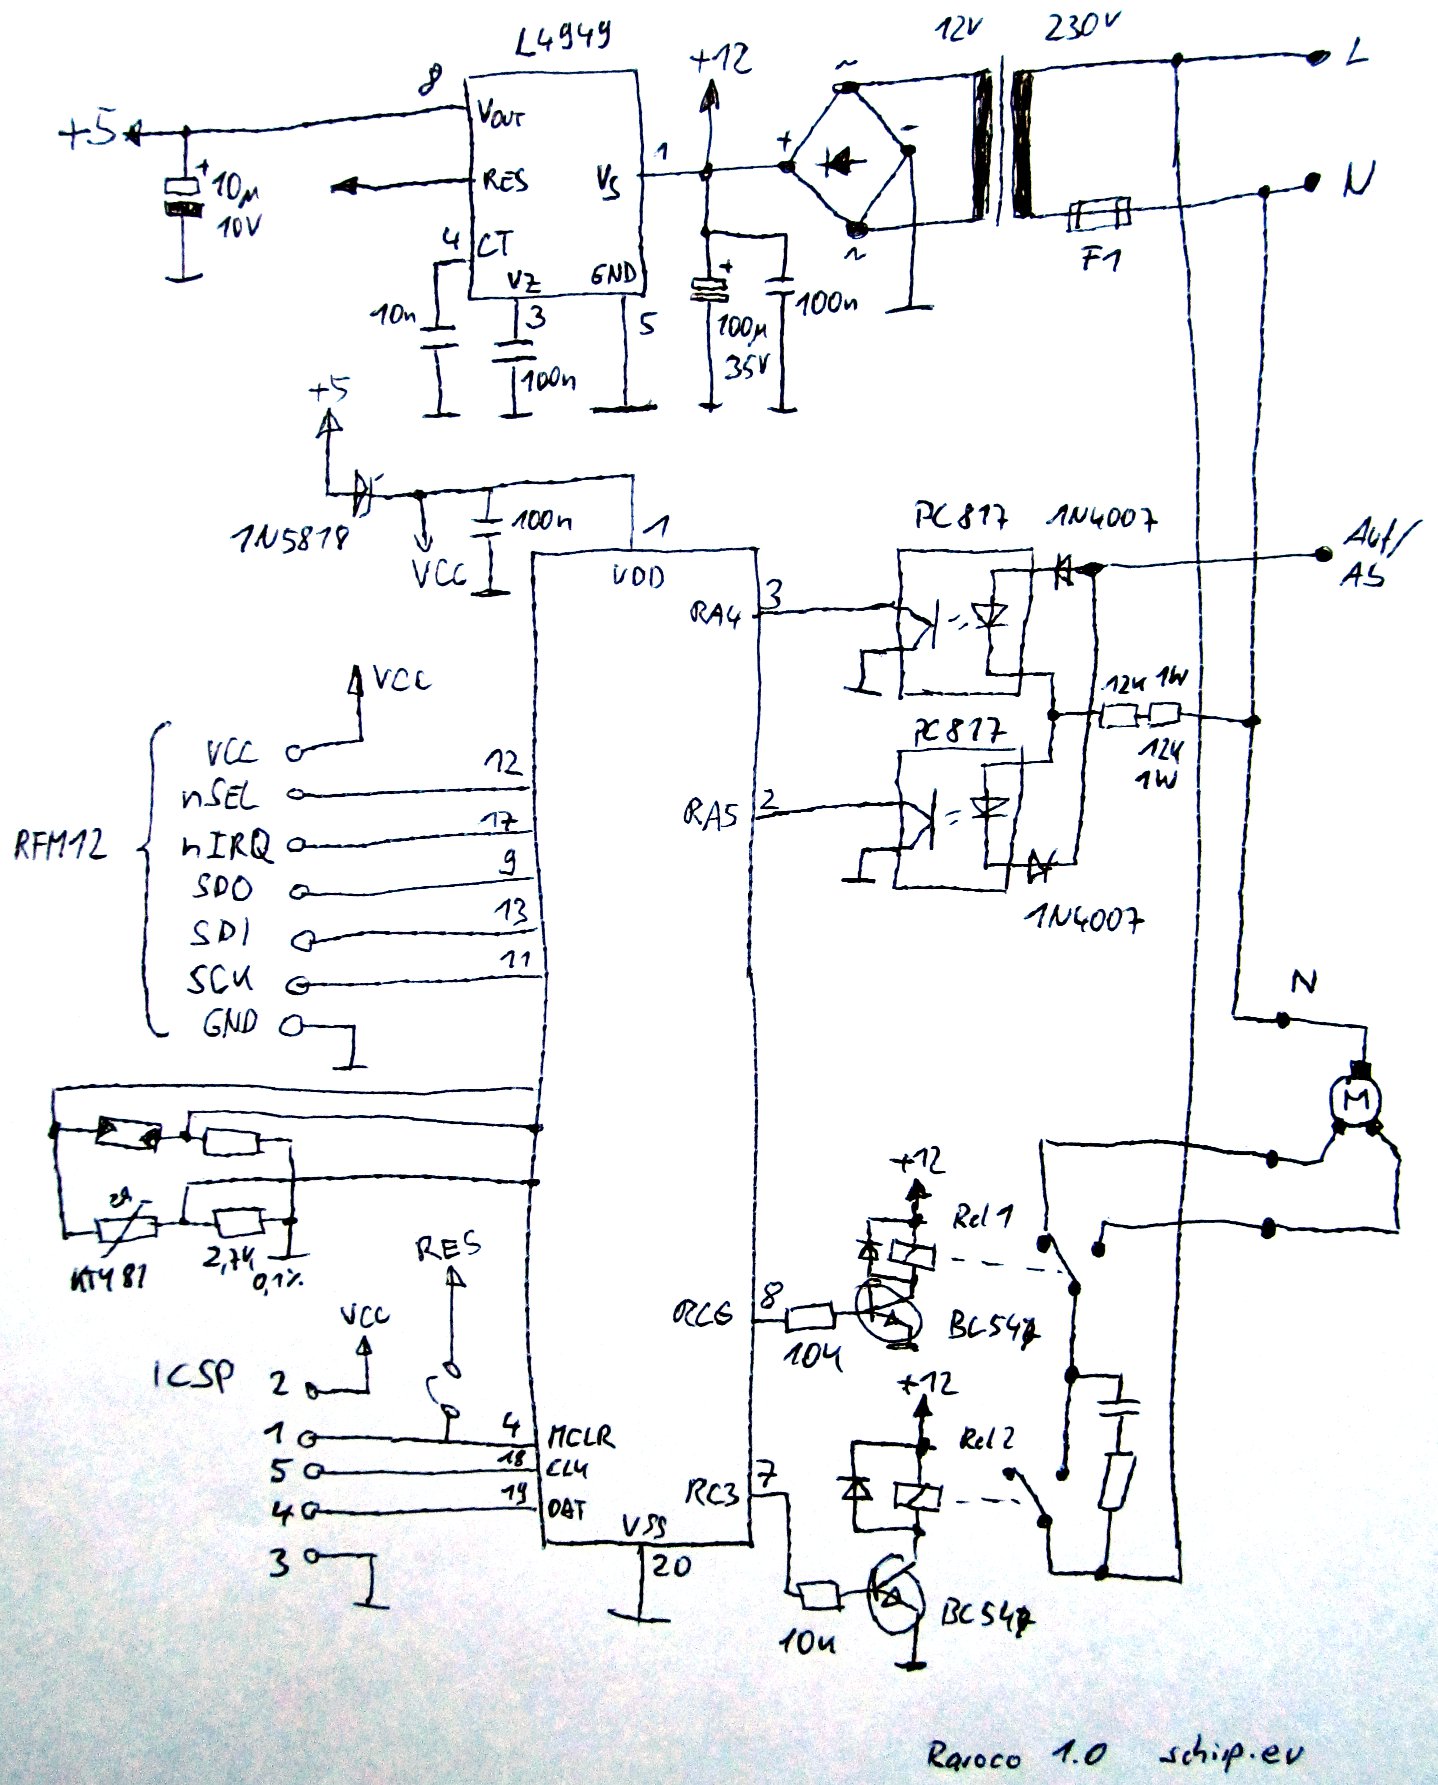 L4949
12V 230V
+12
L
8
VOUT
~
+5
+
-
1
RES
VS
N
+
10µ
10V
4
CT
F1
VZ
GND
~
+
10n
3
5
100n
100µ
35V
100n
+5
1N5818
100n
1
VCC
VDD
PC817 1N4007
Auf/
Ab
3
RA4
VCC
12k 1W
12k
1W
RFM12
VCC
nSEL
12
nIRQ
17
SDO
9
SDI
13
SCK
11
GND
PC817
RA5
2
1N4007
N
M
+12
Rel1
ϑ
KTY81
2,7k
0,1%
RES
RC6
8
10k
BC547
VCC
ICSP
2
1
4
MCLR
5
18
CLK
4
19
DAT
3
VSS
20
+12
Rel2
RC3
7
10k
BC547
Raroco 1.0 schip.ev